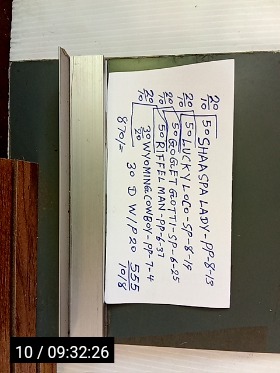 20/10 50 SHAASPA LADY-PP-8-13
20/10 50 LUCKY LOGO-SP-8-18
20/10 50 GOGLET GOTTI-SP-6-25
20/10 50 RIFFEL MAN-PP-6-37
20/10 30/20 WYOMING COWBOY-PP-7-4
870/- 30 D W/P 20 555
10/8
10 / 09:32:26